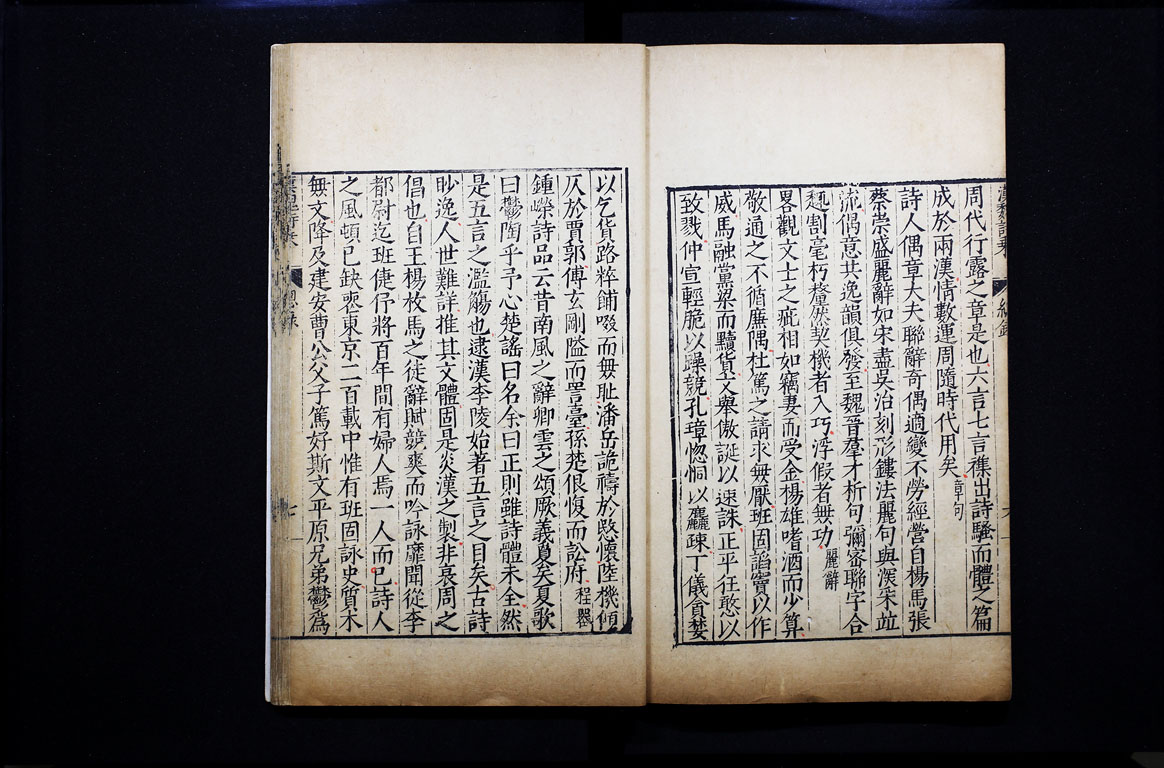 漢魏詩乗 總錄
周代行露之章是也六言七言襍出詩騷而體之篇
成於兩漢情數運周隨時代用矣 章句
詩人偶章大夫聯辭奇偶適變不勞經營自楊馬張
蔡崇盛麗辭如宋盡吳冶刻形鏤法麗句與深采竝
流偶意共逸韻俱發至魏晉羣才析句彌密聯字合
趣割毫析釐然契機者入巧浮假者無功 麗辭
畧觀文士之疵相如竊妻而受金楊雄嗜酒而少算
敬通之不循廉隅杜篤之請求無厭班固諂竇以作
威馬融黨梁而黷貨文舉傲誕以速誅正平狂憨以
致戮仲宣輕脆以躁競孔璋惚恫以麤疎丁儀貪婪
以乞貨路粹餔啜而無耻潘岳詭禱於愍懷陸機傾
仄於賈郭傅玄剛隘而詈臺孫楚佷愎而訟府 程器
鍾嶸詩品云昔南風之辭卿雲之頌厥義夐矣夏歌
曰鬱陶乎予心楚謠曰名余曰正則雖詩體未全然
是五言之濫觴也逮漢李陵始著五言之目矣古詩
眇逸人世難詳推其文體固是炎漢之製非衰周之
倡也自王楊枚馬之徒辭賦競爽而吟詠靡聞從李
都尉迄班倢伃將百年間有婦人焉一人而已詩人
之風頓已缺喪東京二百載中惟有班固詠史質木
無文降及建安曹公父子篤好斯文平原兄弟鬱爲